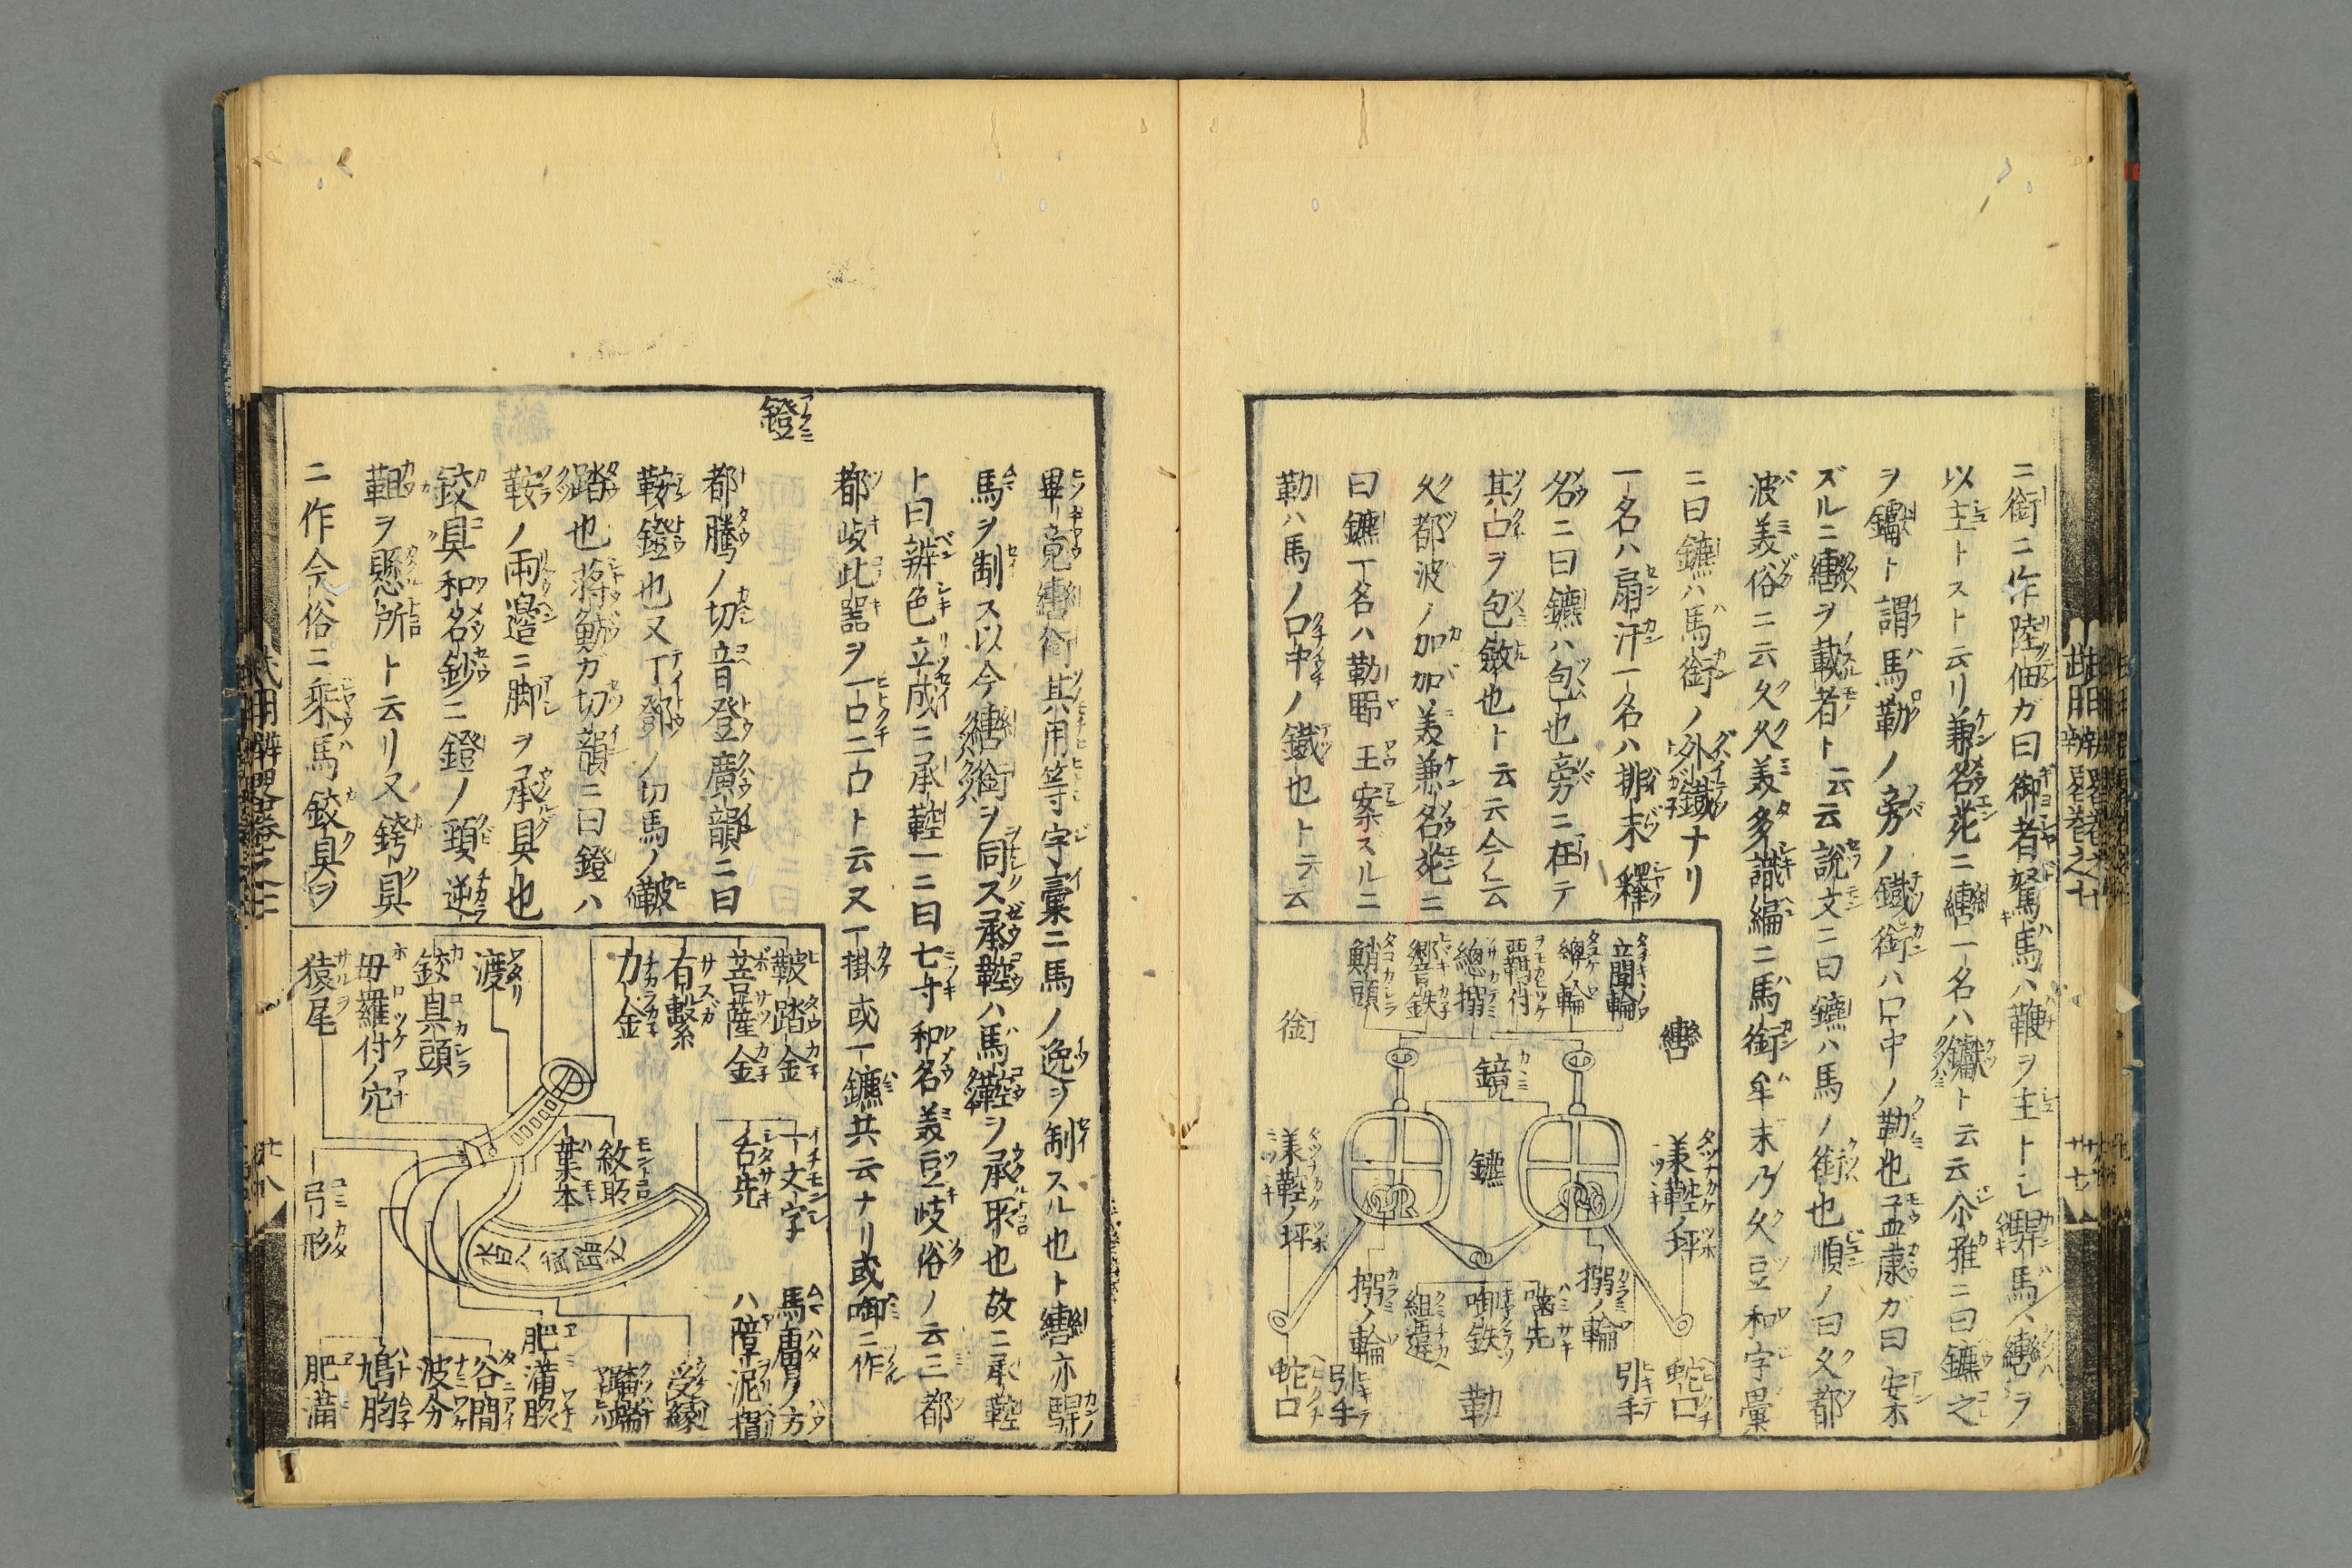 ニ銜ニ作陸佃ガ曰御者駑馬ハ鞭ヲ主トシ駻馬ハ轡ヲ
以主トスト云リ兼名苑ニ轡一名ハ钀ト云云尒雅ニ曰鑣之
ヲ钀ト謂馬勒ノ旁ノ鐵銜ハ口中ノ勒也孟康ガ曰案
ズルニ轡ヲ載者ト云云説文ニ曰鑣ハ馬ノ銜也順ノ曰久都
波美俗ニ云久久美多識編ニ馬銜牟末乃久豆和字彙
ニ曰鑣ハ馬銜ノ外鐵ナリ
一名ハ扇汗一名ハ排末釋
名ニ曰鑣ハ包也旁ニ在テ
其口ヲ包斂也ト云云今ノ云
久都波ノ加加美兼名苑ニ
曰鑣一名ハ勒 王案スルニ
勒ハ馬ノ口中ノ鐵也ト云云
轡
立聞輪
總ノ輪
覊付
總搦
響鉄
鮹頭
銜
鏡
鑣
渼鞚ノ坪
渼鞚ノ坪
搦ノ輪
搦ノ輪
喰先
啣鉄
組違
勒
引手
引手
蛇口
蛇口
畢竟轡銜其用等字彙ニ馬ノ逸ヲ制スル也ト轡亦駻
馬ヲ制ス以今轡銜ヲ同ス承鞚ハ馬鞚ヲ承取也故ニ承鞚
ト曰辨色立成ニ承鞚一ニ曰七寸和名美豆岐俗ノ云三都
都岐此噐ヲ一口二口ト云又一掛或一鑣共云ナリ或啣ニ作
鐙
都騰ノ切音登廣韻ニ曰
鞍鐙也又丁鄧ノ切馬ノ鞁
踏也蒋魴ガ切韻ニ曰鐙ハ
鞍ノ兩邉ニ脚ヲ承具也
鉸具和名鈔ニ鐙ノ頸逆
靼ヲ懸所ト云リ又銙具
ニ作今俗ニ乗馬鉸具ヲ
鞁踏金
菩薩金
有繫
力金
渡
鉸具頭
毋羅付ノ穴
猿尾
一文字
舌先
紋所
葉本
弓形
馬膚ノ方
ハ障泥摺
受縁
肥満
谷間
波分
鳩胸
肥満
廿七
廿八